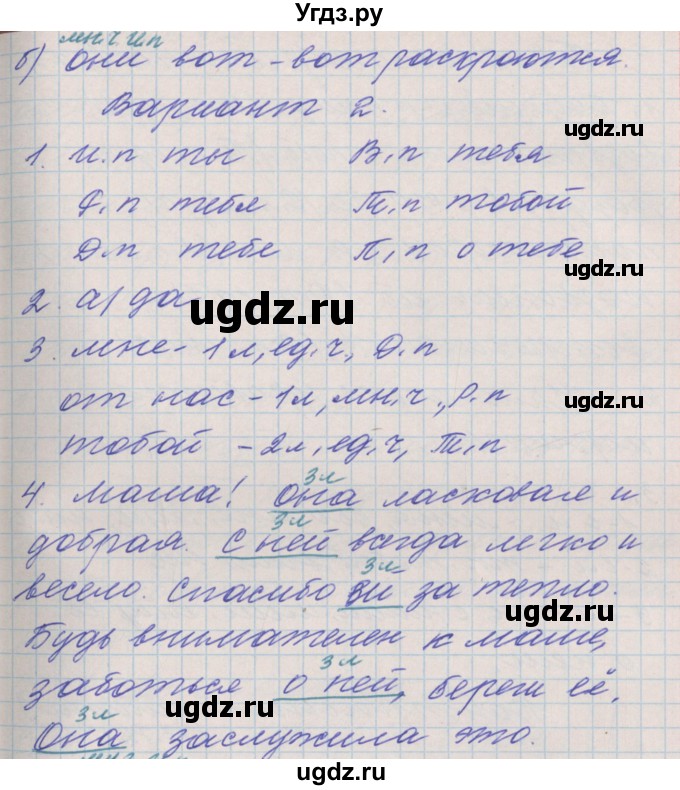 Угдз.ру
мн.ч. и.п
б) они вот-вот раскроются.
Вариант 2.
ugdz.ru
1. И.п ты В.п тебя
Р.п тебя Т.п тобой
ugdz.ru
Д.п тебе П.п о тебе
ugdz.ru
2. а) да.
ugdz.ru
3. мне - 1 л, ед.ч., Д.п
от нас - 1 л, мн.ч., Р.п
ugdz.ru
тобой - 2 л, ед.ч, Т.п
3 л
4. Мама! Она ласковая и
3 л
добрая. С ней всегда легко и
ugdz.ru
3 л
весело. Спасибо ей за тепло.
ugdz.ru
Будь внимателен к маме,
3 л
заботься о ней, береги её.
ugdz.ru
3 л
Она заслужила это.
ugdz.ru